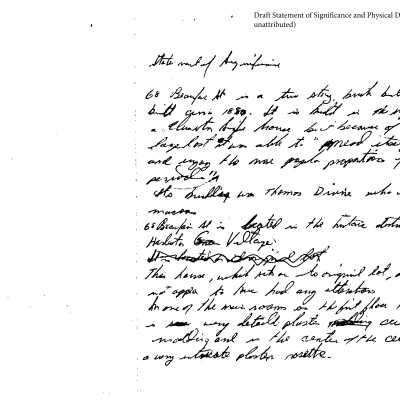 Draft Statement of Significance and Physical D
unattributed)
Statement of Significance
68 Beaufain St is a two story brick
built circa 1880. It is built in the
a Charleston Single House, but because of
large lot it was able to "spread
and enjoy the more proportions
period."
Its builder was Thomas Divine who
mason
68 Beaufain St is located in the historic
Harleston Village.
This house, which sits on its original lot,
not appear to have had any alterations
In one of the main rooms on the first floor
is very detailed plaster
molding and in the center of the
a very intricate plaster rosette.